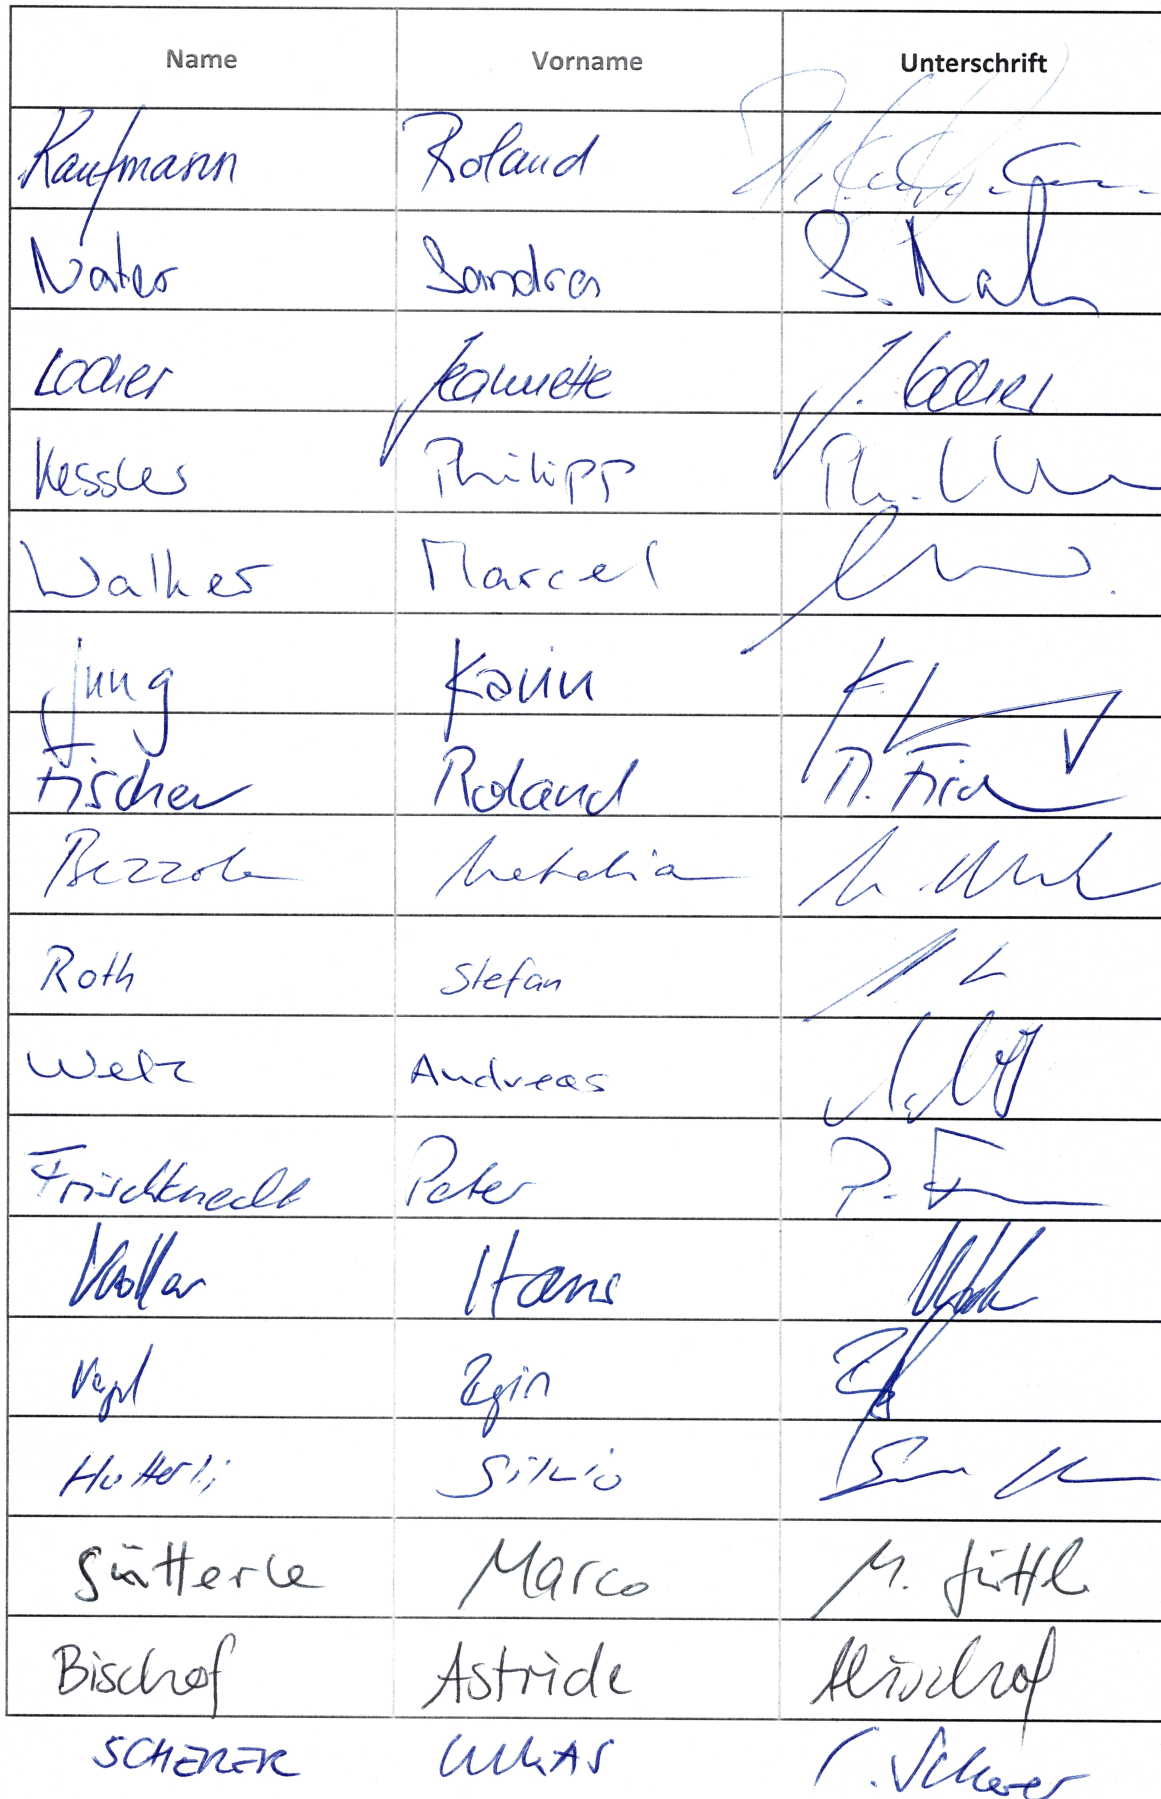 Name Vorname Unterschrift
Kaufmann Roland
Nater Sandra S. Nater
Locher Jeannette J. Locher
Kessler Philipp Ph.
Walker Marcel
Jung Karin K.
Fischer Roland R. Fisch
Bezzola
Roth Stefan
Welz Andreas
Frischknecht Peter P. F
Hans
Vogel
Hutterli Silvio
Gütterle Marco M. Güttl
Bischof Astride ABischof
SCHERER LUKAS L. Scherer